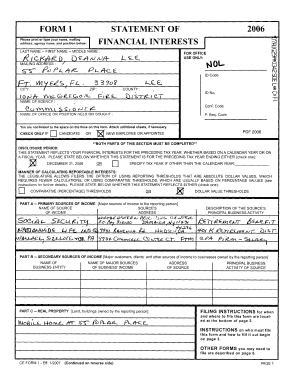 FORM 1
STATEMENT OF
2006
Please print or type your name, mailing
address, agency name, and position below:
FINANCIAL INTERESTS
LAST NAME -- FIRST NAME -- MIDDLE NAME:
FOR OFFICE
USE ONLY:
RICKARD, DEANNA LEE
MAILING ADDRESS:
55 POPLAR PLACE
NOL
FT. MYERS, FL 33908 LEE
ID Code
CITY: ZIP: COUNTY:
ID No.
IONA MCGREGOR FIRE DISTRICT
NAME OF AGENCY:
Conf. Code
COMMISSIONER
NAME OF OFFICE OR POSITION HELD OR SOUGHT:
P. Req. Code
You are not limited to the space on the lines on this form. Attach additional sheets, if necessary.
CHECK ONLY IF CANDIDATE OR NEW EMPLOYEE OR APPOINTEE
PDF 2006
**BOTH PARTS OF THIS SECTION MUST BE COMPLETED**
DISCLOSURE PERIOD:
THIS STATEMENT REFLECTS YOUR FINANCIAL INTERESTS FOR THE PRECEDING TAX YEAR, WHETHER BASED ON A CALENDAR YEAR OR ON
A FISCAL YEAR. PLEASE STATE BELOW WHETHER THIS STATEMENT IS FOR THE PRECEDING TAX YEAR ENDING EITHER (check one):
DECEMBER 31, 2006 OR SPECIFY TAX YEAR IF OTHER THAN THE CALENDAR YEAR:
MANNER OF CALCULATING REPORTABLE INTERESTS:
THE LEGISLATURE ALLOWS FILERS THE OPTION OF USING REPORTING THRESHOLDS THAT ARE ABSOLUTE DOLLAR VALUES, WHICH
REQUIRES FEWER CALCULATIONS, OR USING COMPARATIVE THRESHOLDS, WHICH ARE USUALLY BASED ON PERCENTAGE VALUES (see
instructions for further details). PLEASE STATE BELOW WHETHER THIS STATEMENT REFLECTS EITHER (check one):
COMPARATIVE (PERCENTAGE) THRESHOLDS OR DOLLAR VALUE THRESHOLDS
PART A -- PRIMARY SOURCES OF INCOME [Major sources of income to the reporting person]
NAME OF SOURCE
OF INCOME
SOURCE'S
ADDRESS
DESCRIPTION OF THE SOURCE'S
PRINCIPAL BUSINESS ACTIVITY
SOCIAL SECURITY
RETIREMENT BENEFIT
NATIONWIDE LIFE INS
PART B -- SECONDARY SOURCES OF INCOME [Major customers, clients, and other sources of income to businesses owned by the reporting person]
NAME OF
BUSINESS ENTITY
NAME OF MAJOR SOURCES
OF BUSINESS' INCOME
ADDRESS
OF SOURCE
PRINCIPAL BUSINESS
ACTIVITY OF SOURCE
PART C -- REAL PROPERTY [Land, buildings owned by the reporting person]
MOBILE HOME AT 55 POPLAR PLACE
FILING INSTRUCTIONS for when
and where to file this form are locat-
ed at the bottom of page 2.
INSTRUCTIONS on who must file
this form and how to fill it out begin
on page 3.
OTHER FORMS you may need to
file are described on page 6.
CE FORM 1 - Eff. 1/2007 (Continued on reverse side) PAGE 1